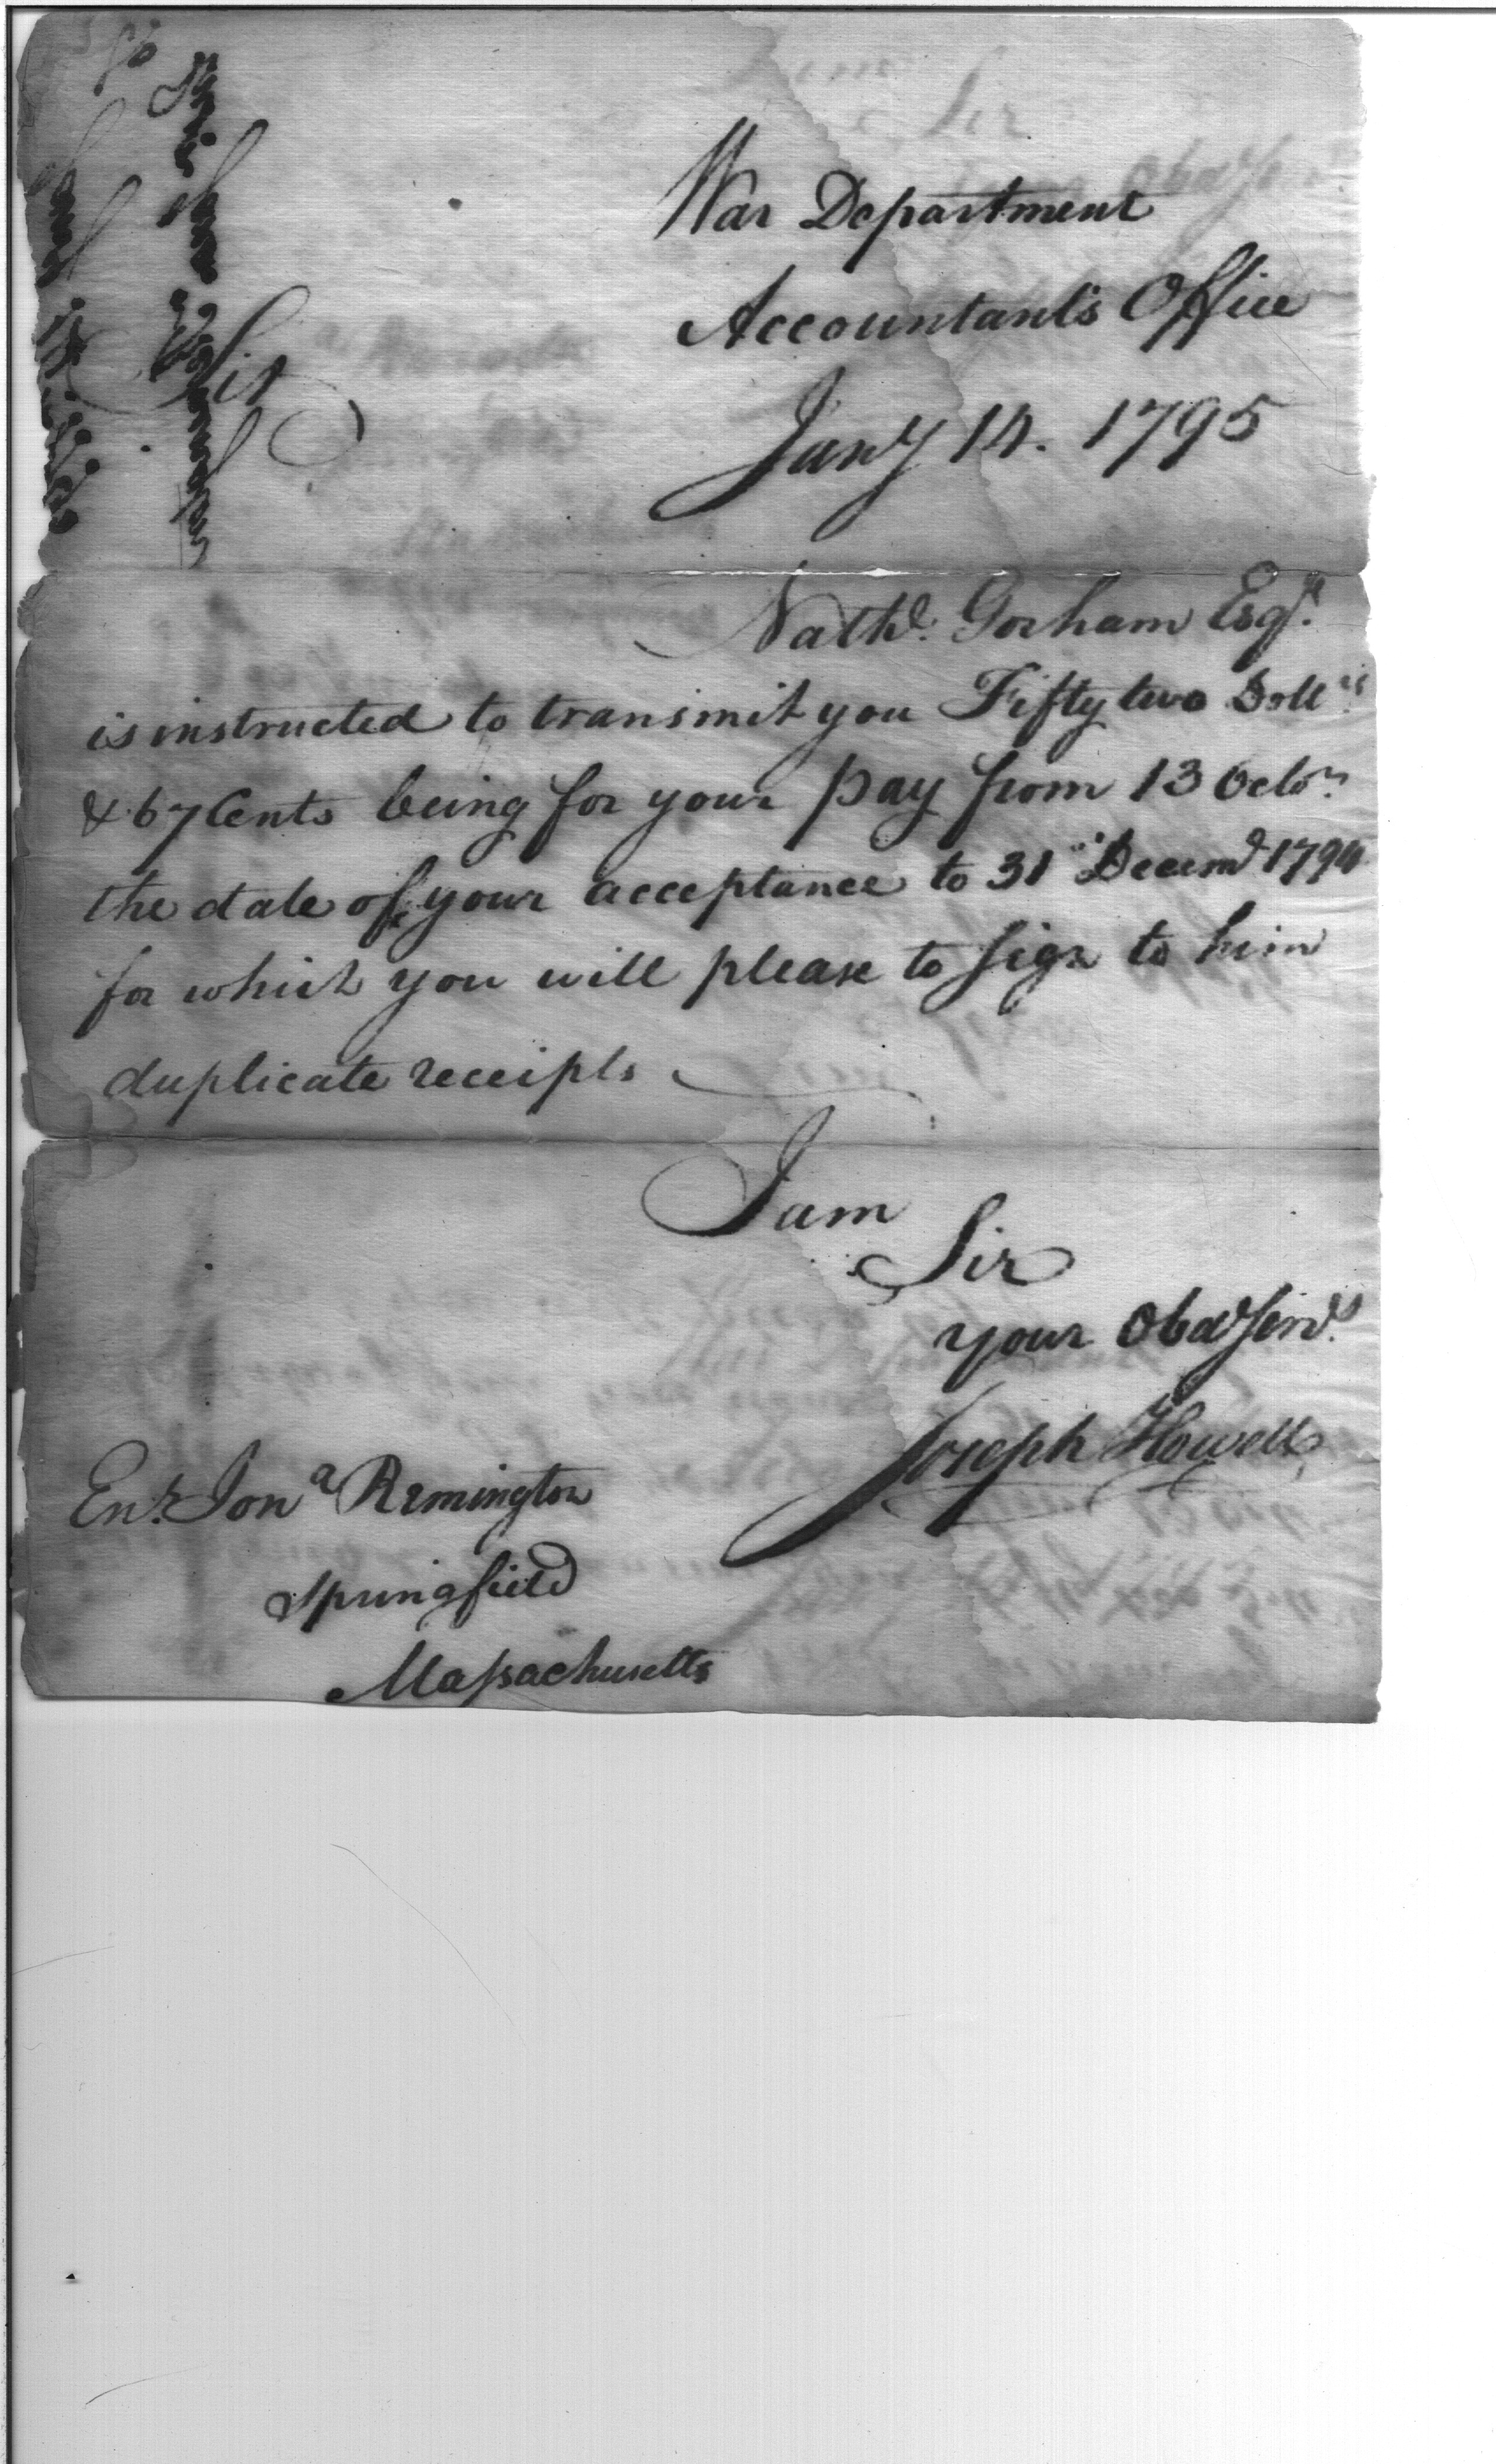 War Department
Accountants Office
Jany 14. 1795
Sir
Nathl. Gorham Esqr.
is instructed to transmit you Fifty two Dollrs.
& 67 Cents being for your pay from 13 Octor.
the date of your acceptance to 31 Decemr 1794
for which you will please to sign to him
duplicate receipts
I am
Sir
your Obed Servt.
Joseph Howell
Enn. Jona Remington
Springfield
Massachusetts